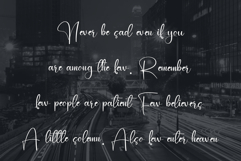 Never be sad even if you
are among the few. Remember
few people are patient Few believers
A little solemn. Also few enter heaven